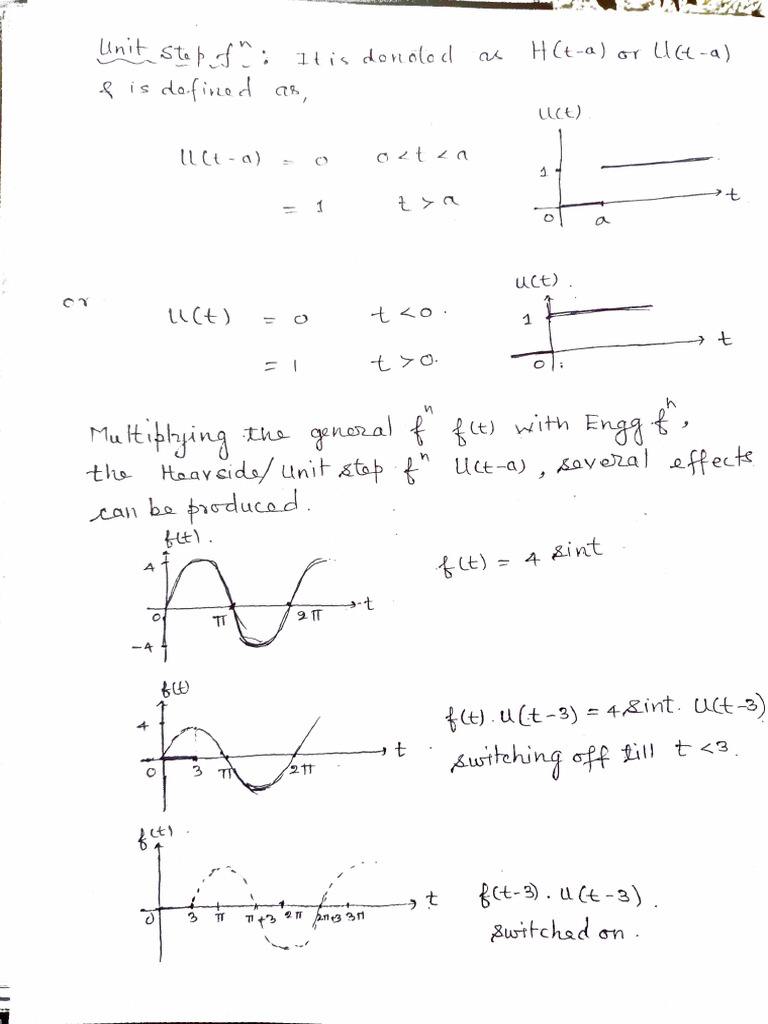 Unit step fⁿ: It is denoted as H(t-a) or U(t-a)
& is defined as,
U(t)
U(t-a) = 0 0<t<a
= 1 t>a
1
t
0 a
or
U(t) = 0 t<0.
= 1 t>0.
U(t).
1
t
0
Multiplying the general fⁿ f(t) with Engg fⁿ,
the Heavside/Unit step fⁿ U(t-a), several effects
can be produced.
f(t).
4
0 π 2π t
-4
f(t) = 4 sint
f(t)
4
0 3 π 2π t
f(t). U(t-3) = 4 sint. U(t-3)
switching off till t <3.
f(t).
0 3 π π+3 2π 2π+3 3π t
f(t-3). U(t-3).
switched on.